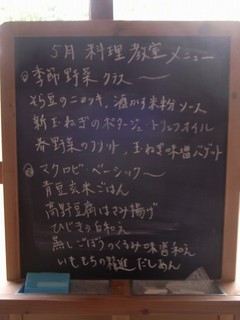 5月 料理教室メニュー
季節野菜クラス〜
そら豆のニョッキ、酒かす米粉ソース
新玉ねぎのポタージュ トリュフオイル
春野菜の、玉ねぎ味噌バゲット
マクロビ・ベーシック〜
青豆玄米ごはん
高野豆腐はさみ揚げ
ひじきの白和え
蒸しごぼうのくるみ味噌和え
いももちの精進だしあん